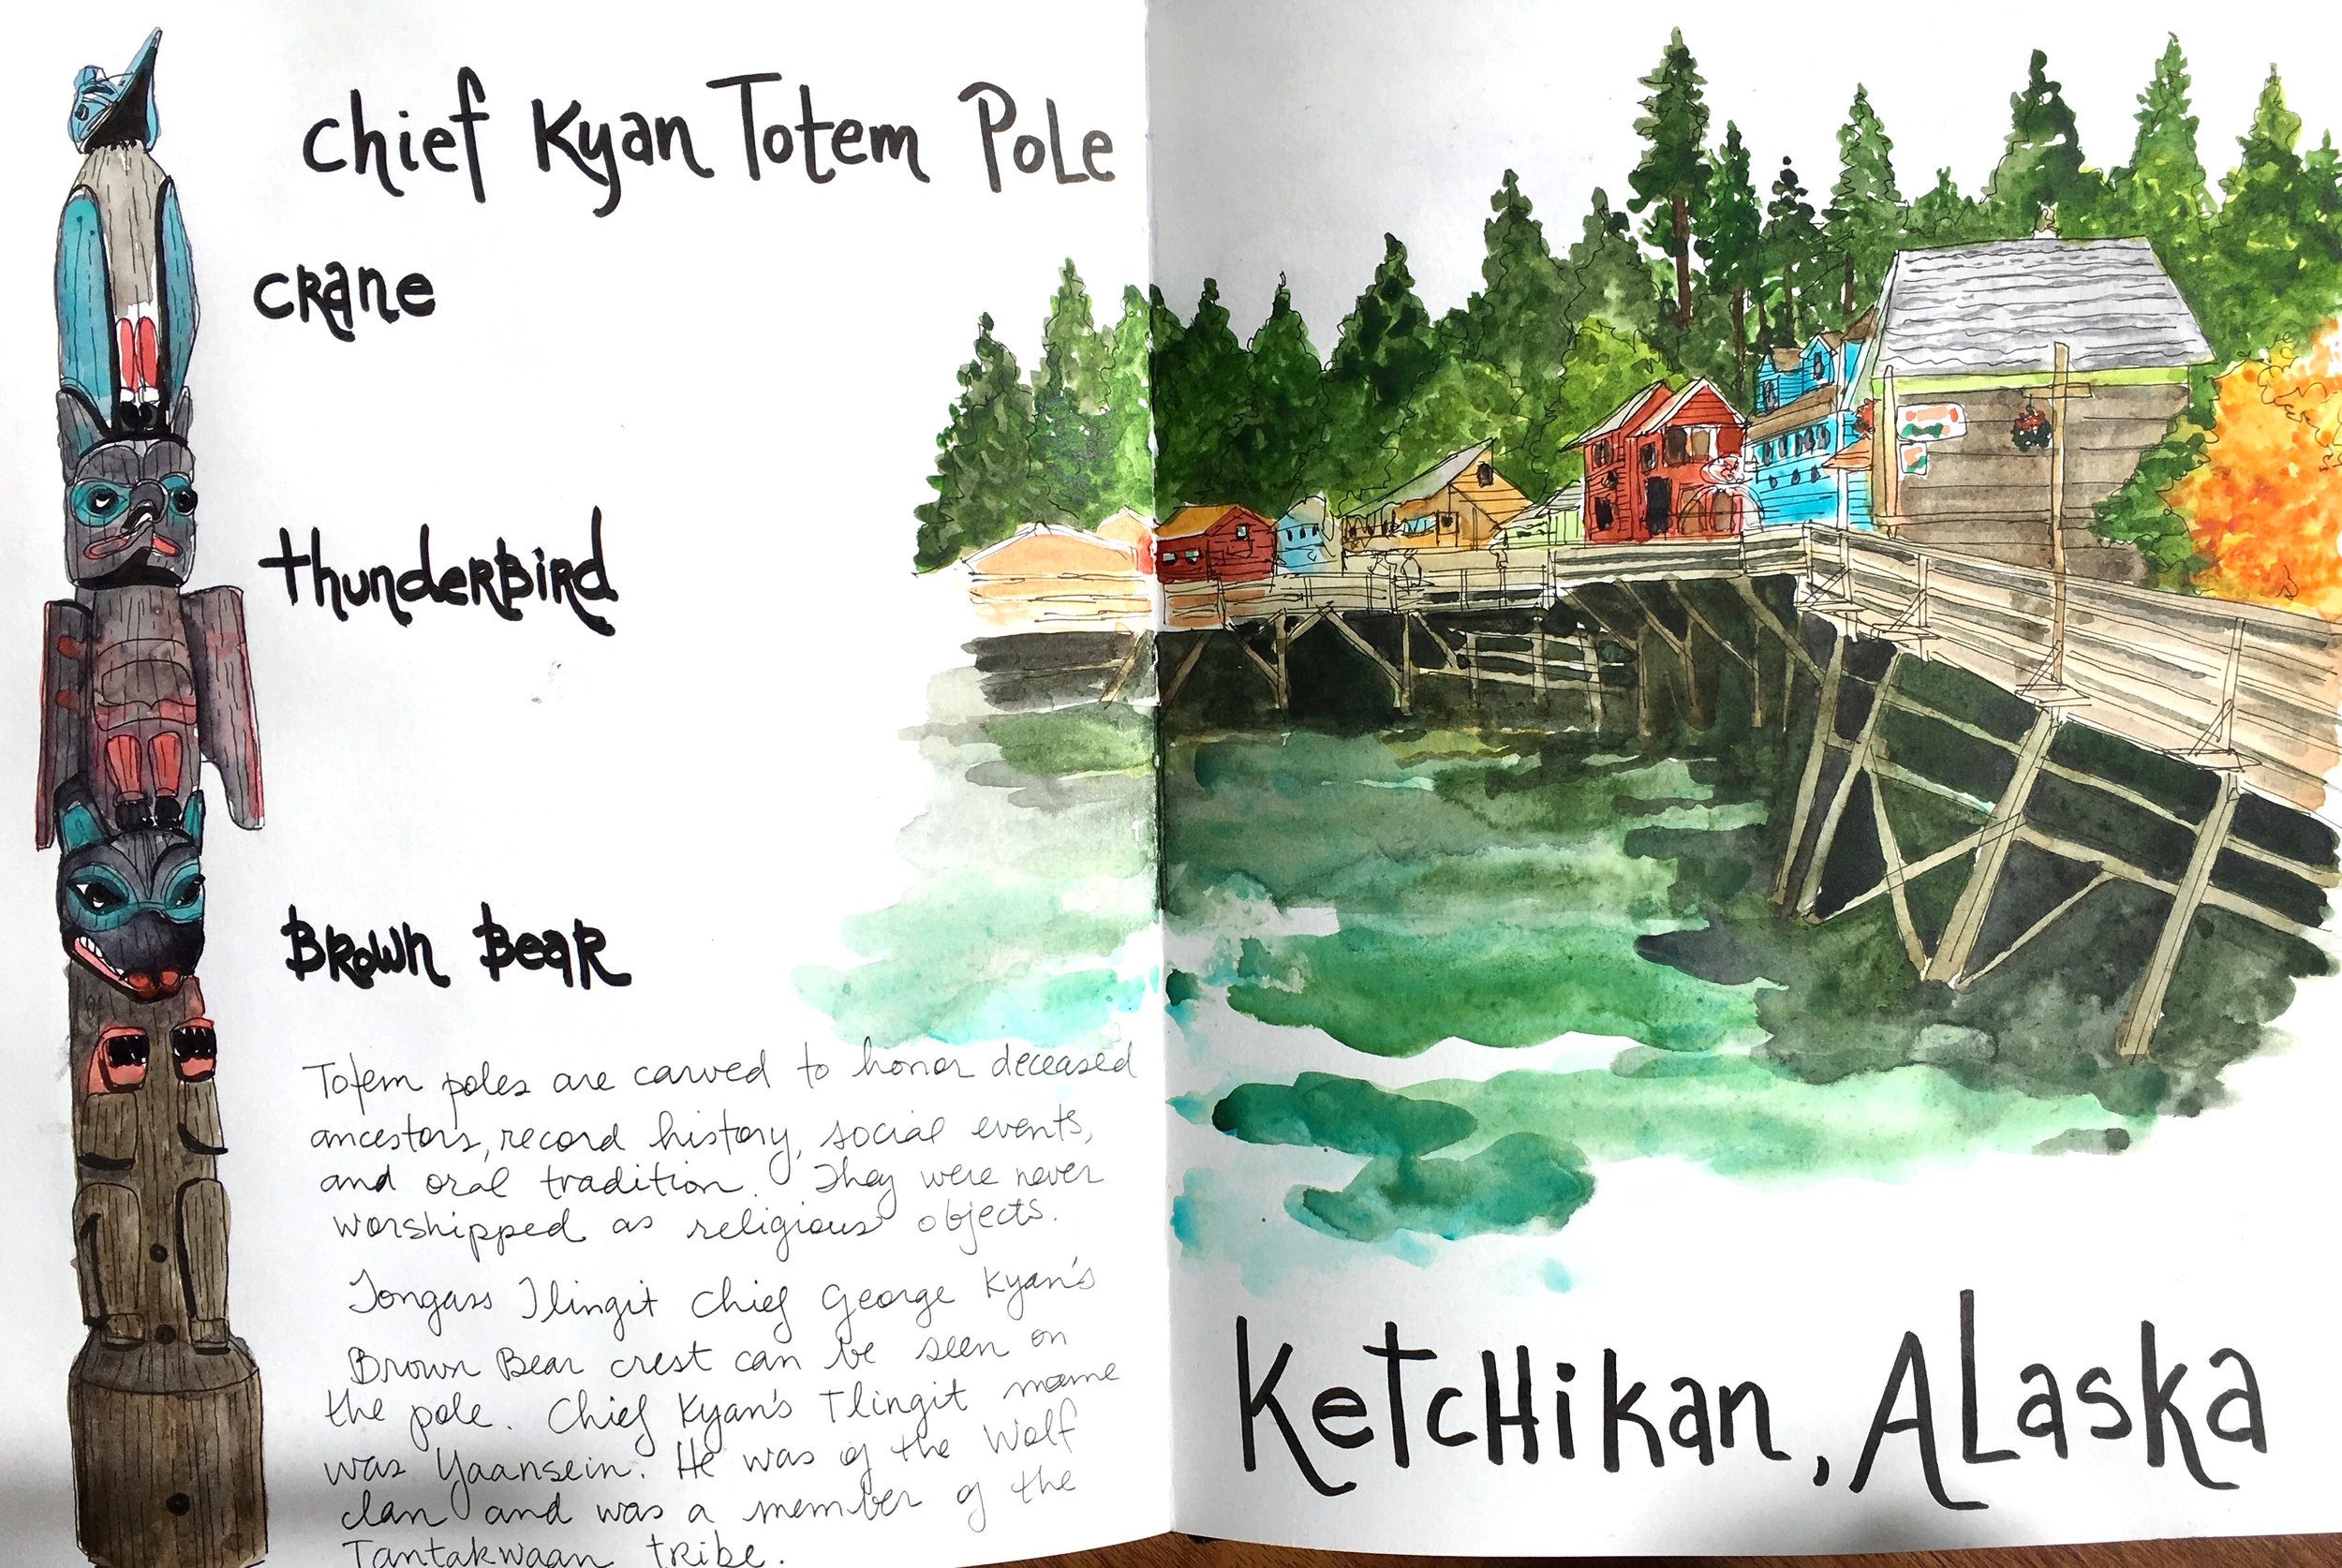 Chief Kyan Totem Pole
Crane
Thunderbird
Brown Bear
Totem poles are carved to honor deceased
ancestors, record history, social events,
and oral tradition. They were never
worshipped as religious objects.
Tongass Tlingit Chief George Kyan's
Brown Bear crest can be seen on
the pole. Chief Kyan's Tlingit name
was Yaansein. He was of the Wolf
clan and was a member of the
Tantakwaan tribe.
Ketchikan, Alaska